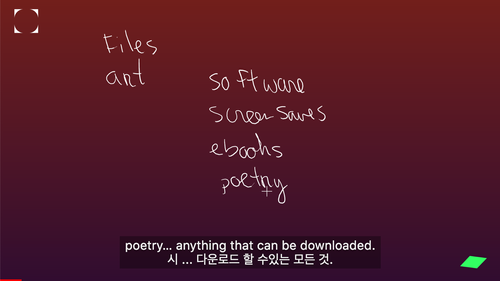 Files
art
software
screensaves
ebooks
poetry
poetry... anything that can be downloaded.
시 ... 다운로드 할 수있는 모든 것.